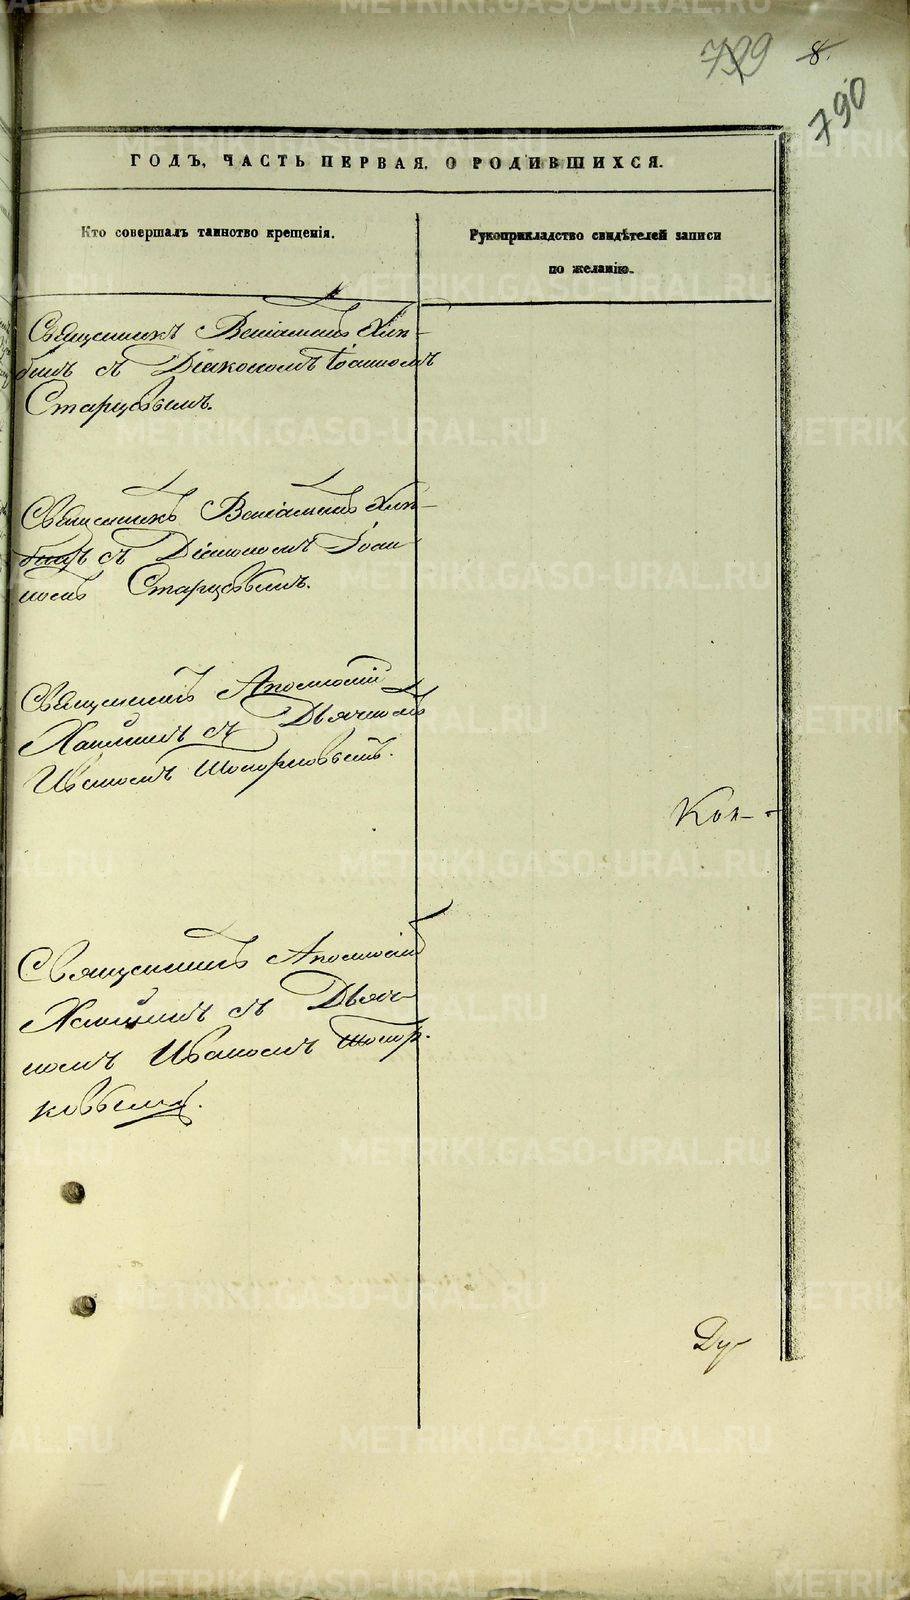 799 8.
790
ГОДЪ, ЧАСТЬ ПЕРВАЯ, О РОДИВШИХСЯ.
Кто совершалъ таинство крещенія.
Рукоприкладство свидѣтелей записи
по желанію.
Священникъ Веніаминъ Хлп-
бинъ съ Діакономъ Іоанномъ
Старцевымъ.
Священникъ Веніаминъ Хлп-
бинъ съ Діакономъ Іоан
номъ Старцевымъ.
Священникъ Аполлоній
съ Дьячкомъ
Иваномъ
Кон-
Священникъ Аполлоній
съ Дьяч-
комъ Иваномъ
ковымъ.
Ду-
METRIKI.GASO-URAL.RU